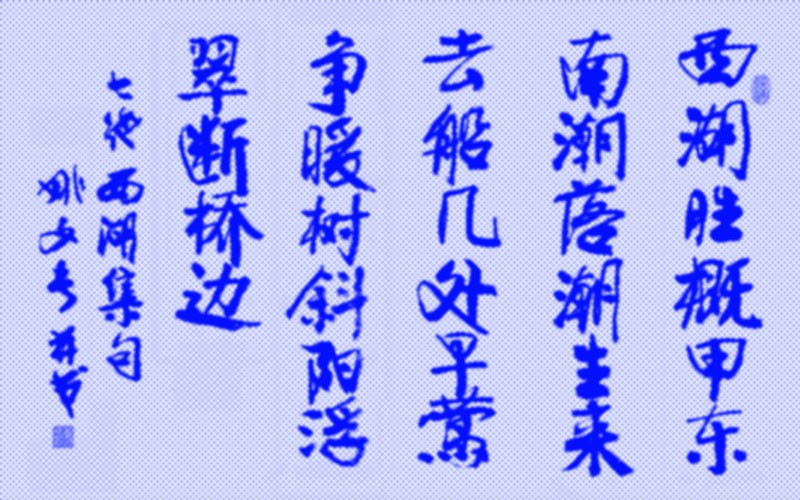 西湖胜概甲东
南潮落潮生来
去船几处早莺
争暖树斜阳浮
翠断桥边
七绝西湖集句
文春并书